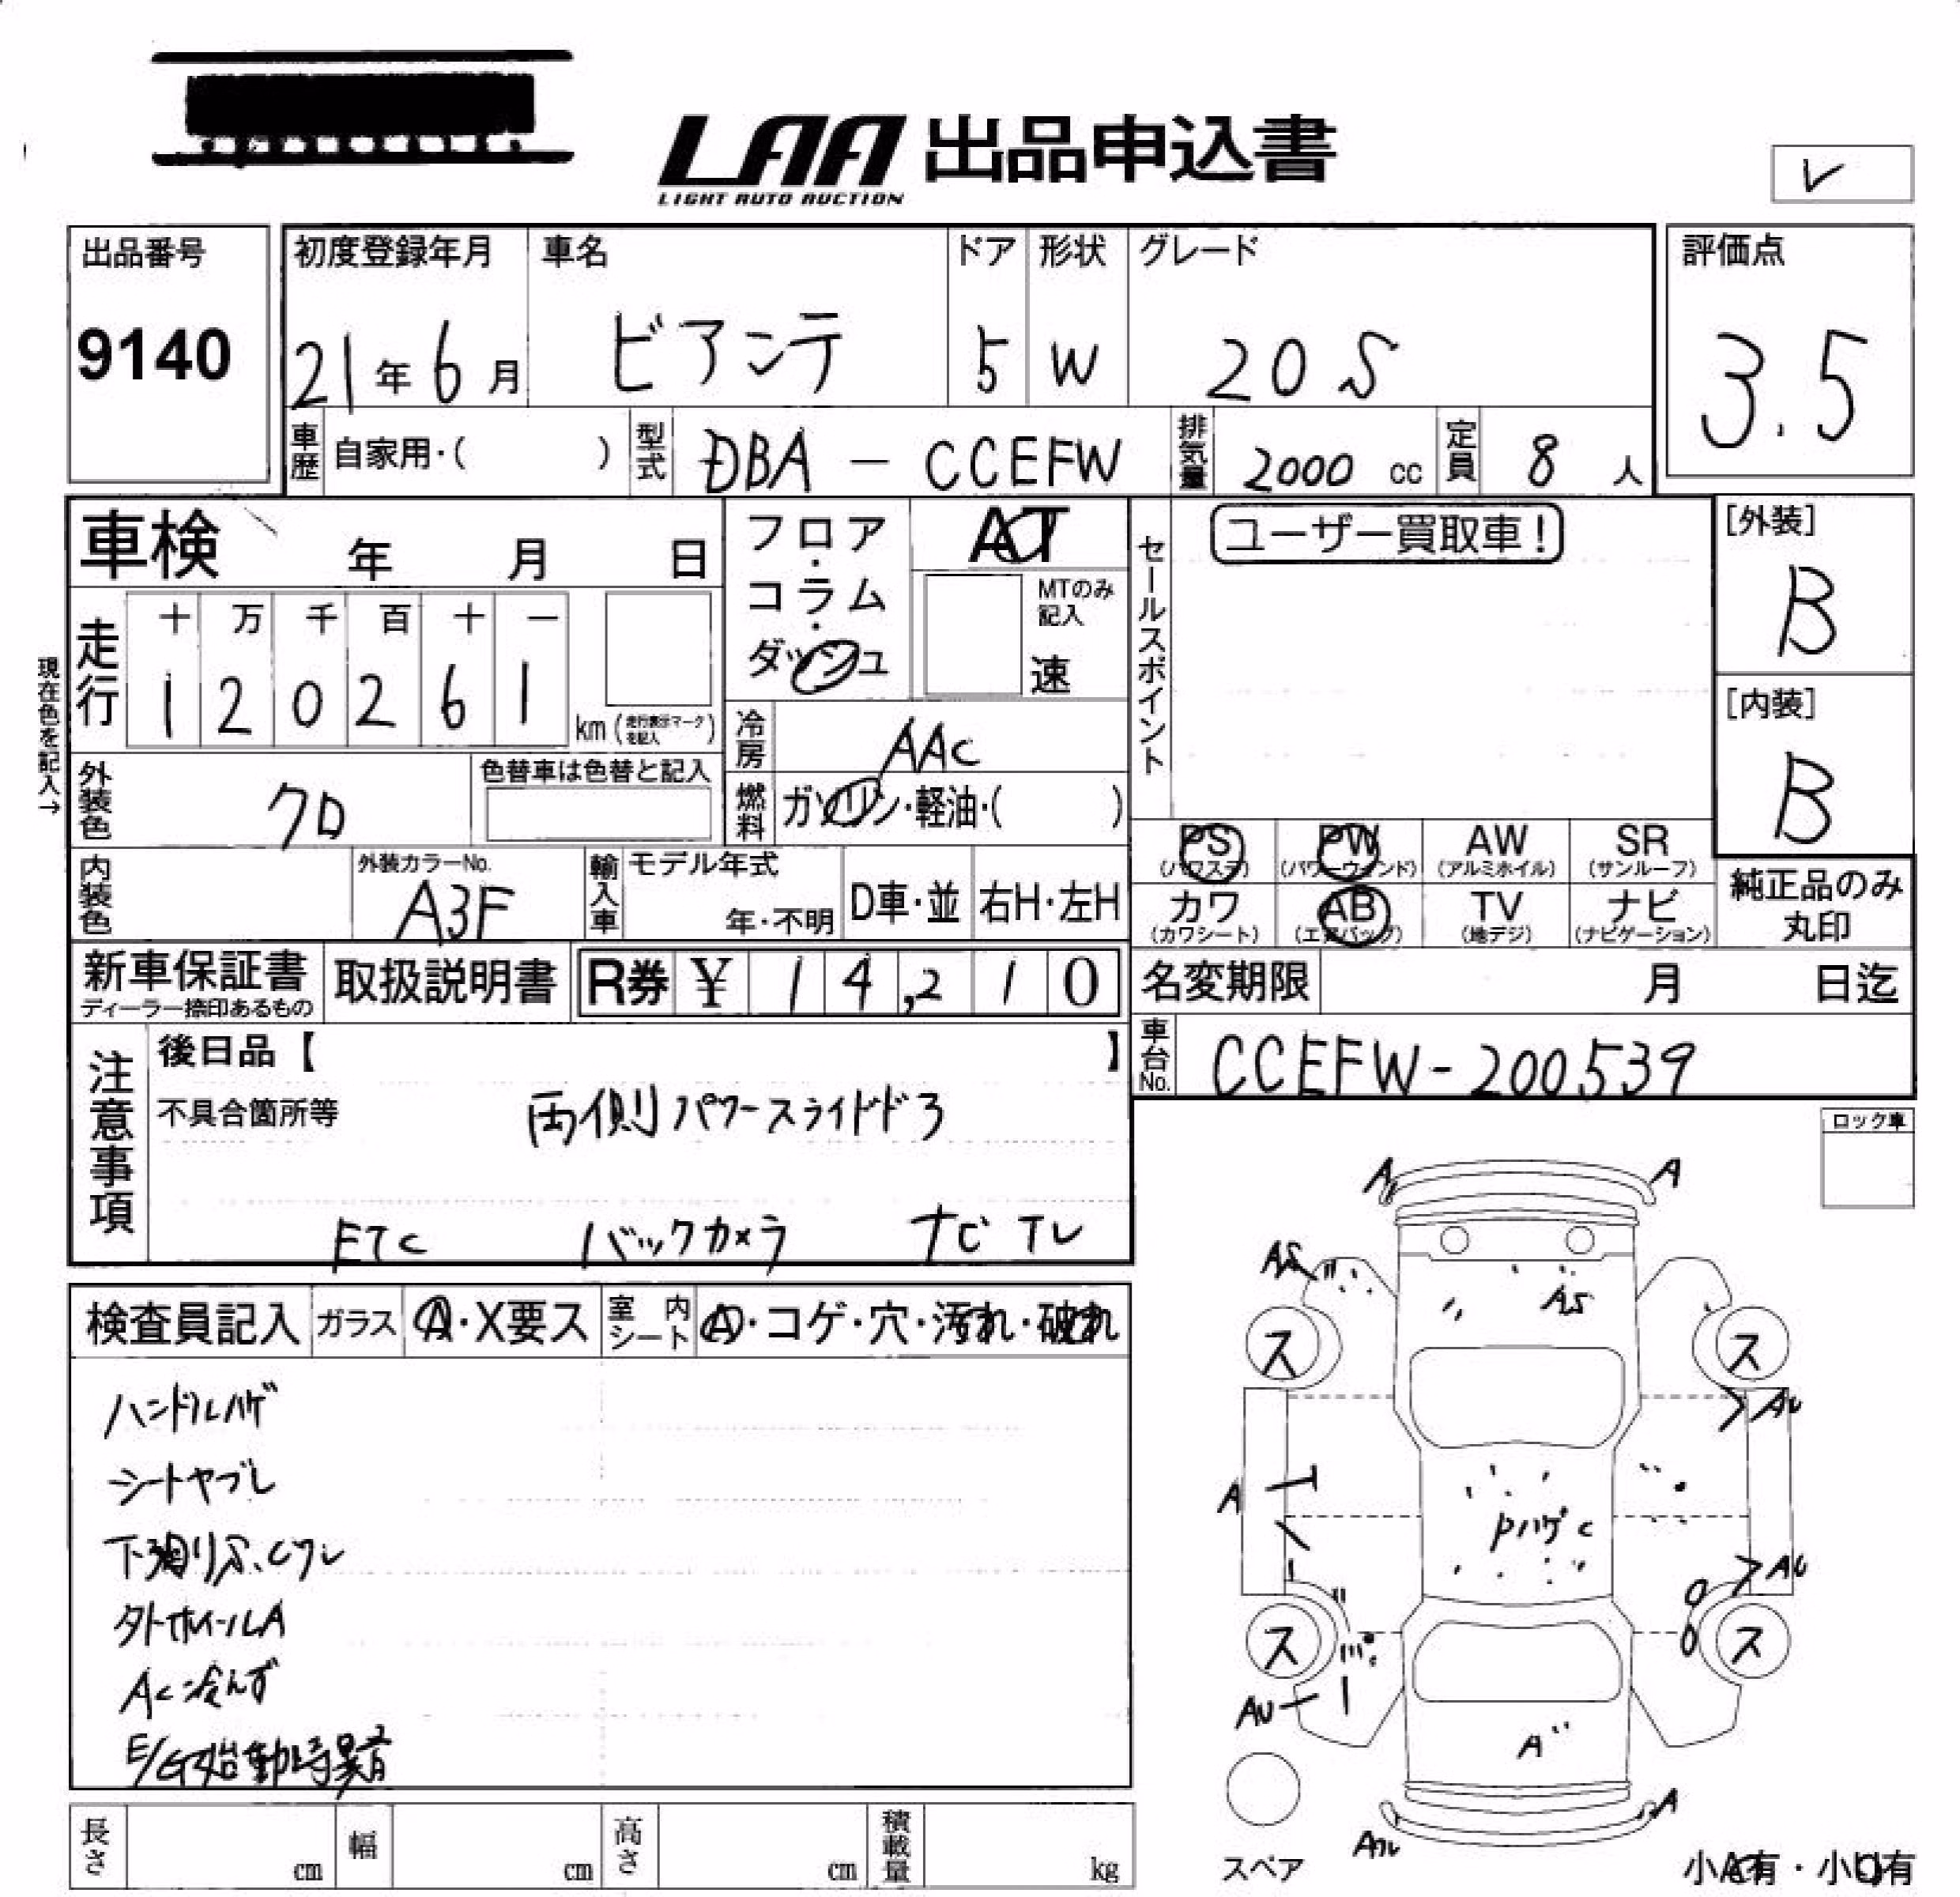 LAA 出品申込書
LIGHT AUTO AUCTION
レ
出品番号 初度登録年月 車名 ドア 形状 グレード 評価点
9140 21年6月 ビアンテ 5 W 20S 3.5
車歴 自家用・( ) 型式 DBA - CCEFW 排気量 2000 cc 定員 8 人
車検 年 月 日
フロア・コラム・ダッシュ AT
MTのみ記入 速
セールスポイント ユーザー買取車!
[外装] B
[内装] B
現在色を記入→
走行 十 万 千 百 十 一
1 2 0 2 6 1 km (走行表示マークを記入)
冷房 AAC
外装色 クロ 色替車は色替と記入
燃料 ガソリン・軽油・( )
PS (パワステ) PW (パワーウィンド) AW (アルミホイル) SR (サンルーフ)
カワ (カワシート) AB (エアバック) TV (地デジ) ナビ (ナビゲーション)
純正品のみ丸印
内装色 外装カラーNo. A3F 輸入車 モデル年式 年・不明 D車・並 右H・左H
新車保証書 ディーラー捺印あるもの 取扱説明書 R券 ¥ 14,210
名変期限 月 日迄
車台No. CCEFW-200539
注意事項 後日品【 】
不具合箇所等 両側パワースライドドア
ETC バックカメラ ナビ TV
ロック車
検査員記入 ガラス A・X要ス 室内シート A・コゲ・穴・汚れ・破れ
ハンドルハゲ
シートヤブレ
下廻りS、Cワレ
タトホイールA
AC冷えず
E/G始動時異音
A A
AS AS
ス ス
AU
A
PハゲC
AU
ス ス
AU
A
A
Aワレ
スペア
小A有・小U有
長さ cm 幅 cm 高さ cm 積載量 kg